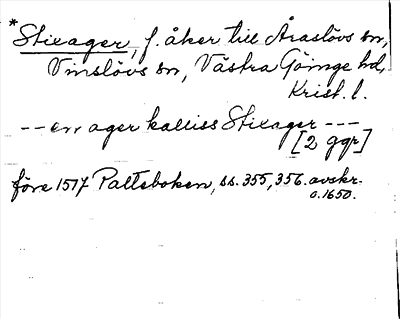 *Stixager, f. åker till Araslövs sn,
Vinslövs sn, Västra Göinge hd,
Krist. l.
-- en ager kalliss Stixager ---
[2 ggr]
före 1517 Palteboken, ss. 355, 356. avskr.
o. 1650.